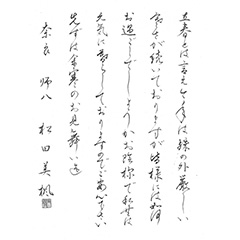 立春とは言え今年は殊の外厳しい
寒さが続いておりますが皆様には如何
お過ごしでしょうかお陰様で私共は
元気に暮しておりますのでご安心下さい
先ずは余寒のお見舞い迄
奈良 師八 松田美楓